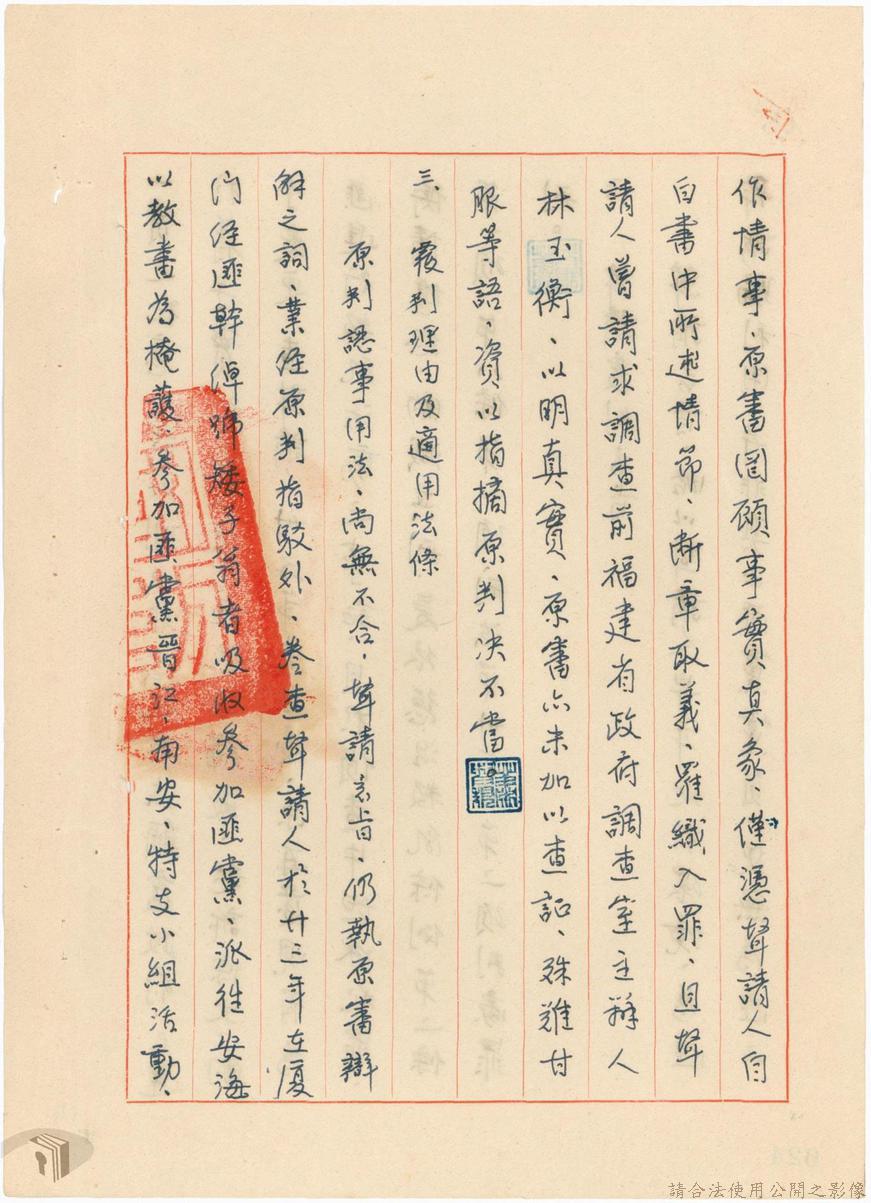 作情事、原審罔顧事實真象、僅憑聲請人自
白書中所述情節、断章取義、羅織入罪、且聲
請人曾請求調查前福建省政府調查室主辦人
林玉衡、以明真實、原審亦未加以查証、殊難甘
服等語、資以指摘原判決不當。
三、覆判理由及適用法條
原判認事用法、尚無不合、聲請意旨、仍執原審辯
解之詞、業经原判指駁外、卷查聲請人於廿三年在厦
门经匪幹綽號矮子翁者吸收參加匪黨、派往安海
以教書為掩護、參加匪黨晋江、南安、特支小組活動、
請合法使用公開之影像